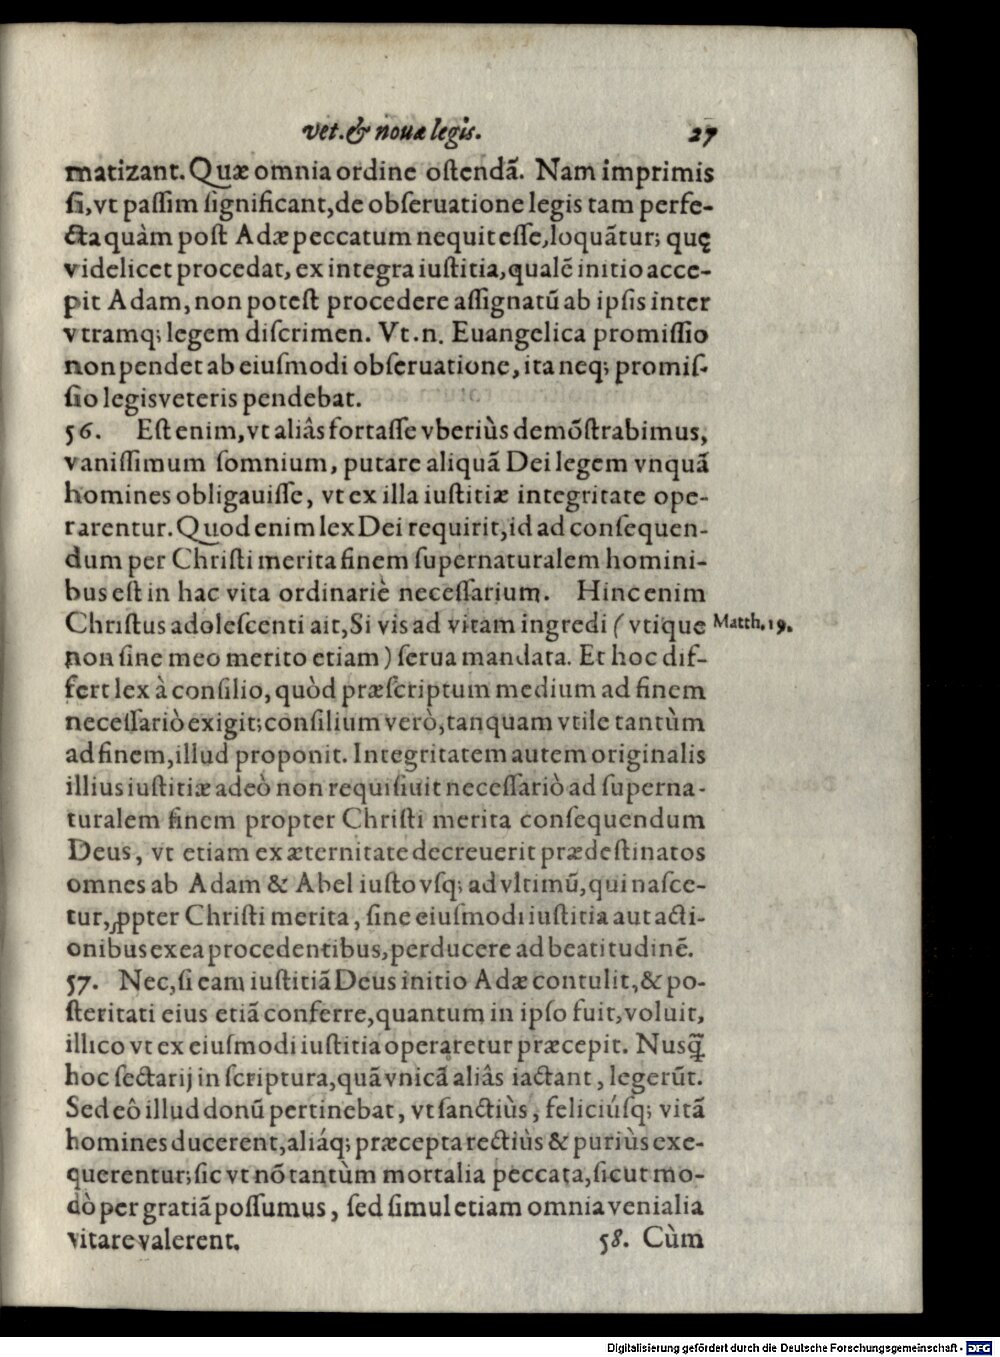 vet. & nouæ legis. 27
matizant. Quæ omnia ordine ostendā. Nam imprimis
si, vt passim significant, de obseruatione legis tam perfe-
cta quàm post Adæ peccatum nequit esse, loquātur; quę
videlicet procedat, ex integra iustitia, qualē initio acce-
pit Adam, non potest procedere assignatū ab ipsis inter
vtramq; legem discrimen. Vt.n. Euangelica promissio
non pendet ab eiusmodi obseruatione, ita neq; promis-
sio legis veteris pendebat.
56. Est enim, vt aliâs fortasse vberiùs demōstrabimus,
vanissimum somnium, putare aliquā Dei legem vnquā
homines obligauisse, vt ex illa iustitiæ integritate ope-
rarentur. Quod enim lex Dei requirit, id ad consequen-
dum per Christi merita finem supernaturalem homini-
bus est in hac vita ordinariè necessarium. Hinc enim
Christus adolescenti ait, Si vis ad vitam ingredi (vtique Matth. 19.
non sine meo merito etiam) serua mandata. Et hoc dif-
fert lex à consilio, quòd præscriptum medium ad finem
necessariò exigit; consilium verò, tanquam vtile tantùm
ad finem, illud proponit. Integritatem autem originalis
illius iustitiæ adeò non requisiuit necessariò ad superna-
turalem finem propter Christi merita consequendum
Deus, vt etiam ex æternitate decreuerit prædestinatos
omnes ab Adam & Abel iusto vsq; ad vltimū, qui nasce-
tur, ꝓpter Christi merita, sine eiusmodi iustitia aut acti-
onibus ex ea procedentibus, perducere ad beatitudinē.
57. Nec, si eam iustitiā Deus initio Adæ contulit, & po-
steritati eius etiā conferre, quantum in ipso fuit, voluit,
illico vt ex eiusmodi iustitia operaretur præcepit. Nusq̃
hoc sectarij in scriptura, quā vnicā aliâs iactant, legerūt.
Sed eô illud donū pertinebat, vt sanctiùs, feliciúsq; vitā
homines ducerent, aliáq; præcepta rectiùs & puriùs exe-
querentur; sic vt nō tantùm mortalia peccata, sicut mo-
dò per gratiā possumus, sed simul etiam omnia venialia
vitare valerent. 58. Cùm
Digitalisierung gefördert durch die Deutsche Forschungsgemeinschaft - DFG